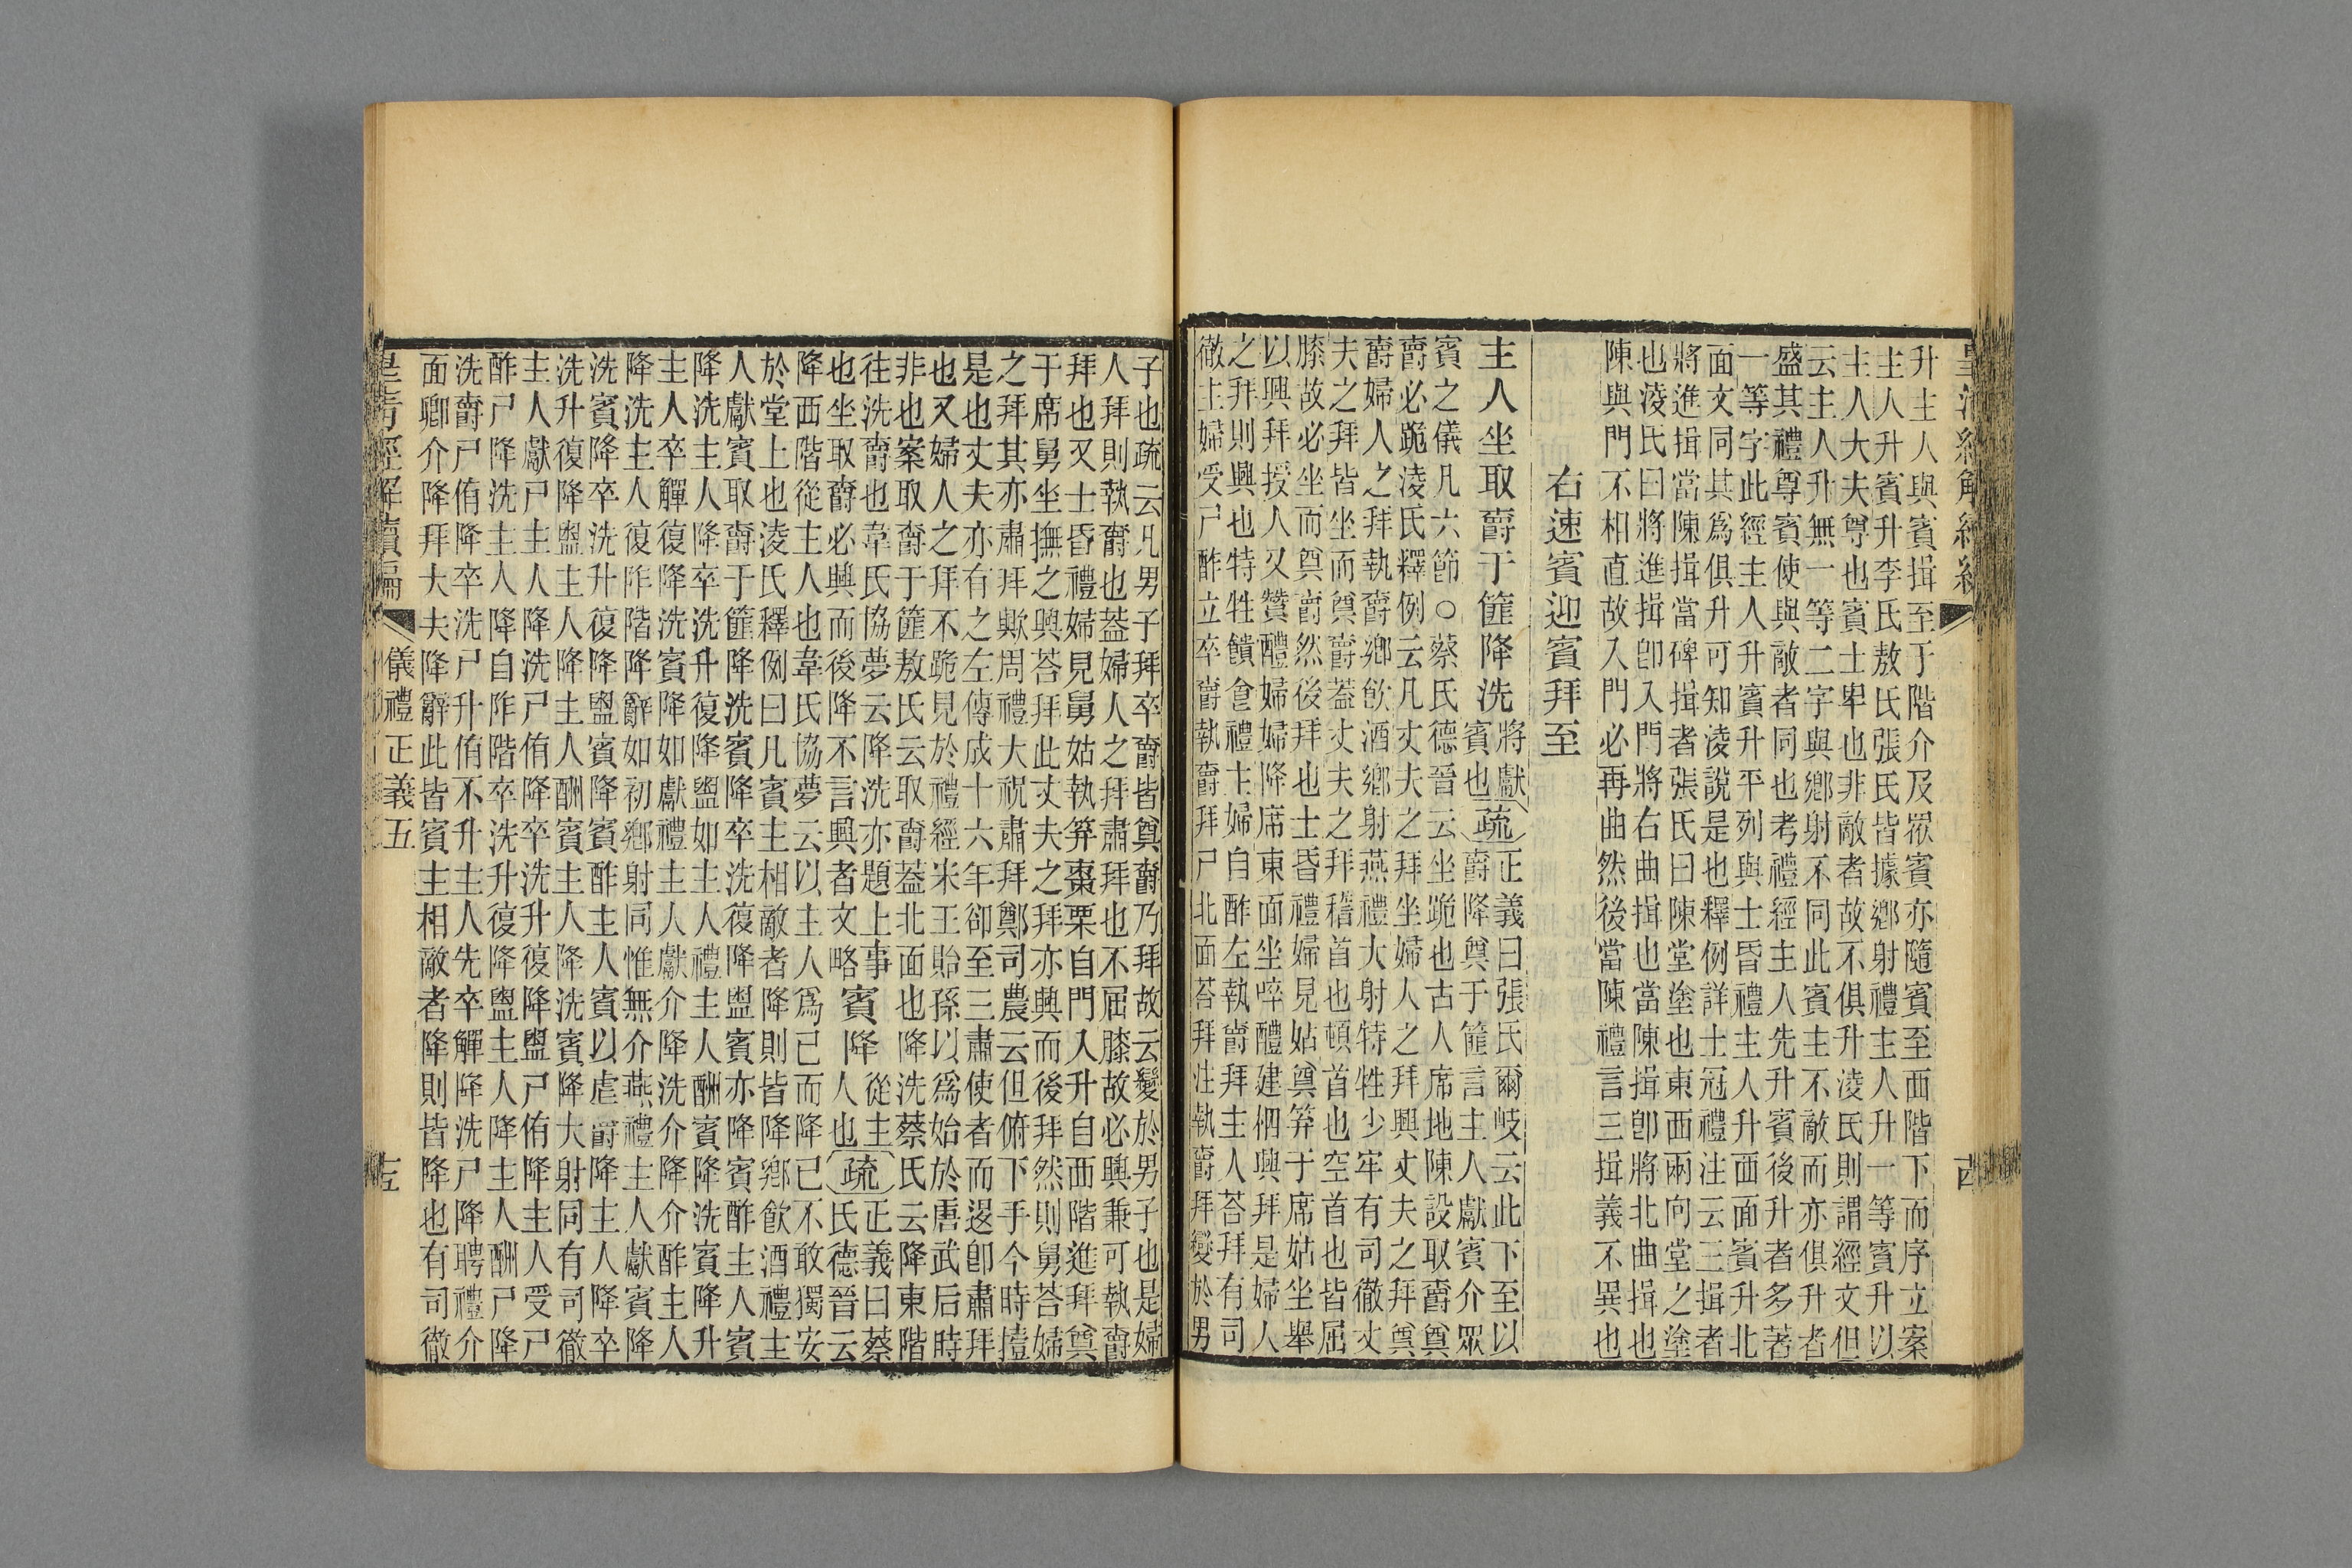 升主人與賓揖至于階介及眾賓亦隨賓至西階下而序立案
主人升賓升李氏敖氏張氏皆據鄉射禮主人升一等賓升以
主人大夫尊也賓士卑也非敵者故不俱升淩氏則謂經文但
云主人升無一等二字與鄉射不同此賓主不敵而亦俱升者
盛其禮尊賓使與敵者同也考禮經主人先升賓後升者多著
一等字此經主人升賓升平列與士昏禮主人升西面賓升北
面文同其爲俱升可知淩說是也釋例詳士冠禮注云三揖者
將進揖當陳揖當碑揖者張氏曰陳堂塗也東西兩向堂之塗
也淩氏曰將進揖卽入門將右曲揖也當陳揖卽將北曲揖也
陳與門不相直故入門必再曲然後當陳禮言三揖義不異也
右速賓迎賓拜至
主人坐取爵于篚降洗
將獻
賓也
疏
正義曰張氏爾岐云此下至以
爵降奠于篚言主人獻賓介眾
賓之儀凡六節○蔡氏德晉云坐跪也古人席地陳設取爵奠
爵必跪淩氏釋例云凡丈夫之拜坐婦人之拜興丈夫之拜奠
爵婦人之拜執爵鄉飲酒鄉射燕禮大射特牲少牢有司徹丈
夫之拜皆坐而奠爵蓋丈夫之拜稽首也頓首也空首也皆屈
膝故必坐而奠爵然後拜也士昏禮婦見姑奠笲于席姑坐舉
以興拜授人又贊醴婦婦降席東面坐啐醴建柶興拜是婦人
之拜則興也特牲饋食禮主婦自酢左執爵拜主人荅拜有司
徹主婦受尸酢立卒爵執爵拜尸北面荅拜注執爵拜變於男
子也疏云凡男子拜卒爵皆奠爵乃拜故云變於男子也是婦
人拜則執爵也蓋婦人之拜肅拜也不屈膝故必興兼可執爵
拜也又士昏禮婦見舅姑執笲棗栗自門入升自西階進拜奠
于席舅坐撫之興荅拜此丈夫之拜亦興而後拜然則舅荅婦
之拜其亦肅拜歟周禮大祝肅拜鄭司農云但俯下手今時擪
是也丈夫亦有之左傳成十六年卻至三肅使者而退卽肅拜
也又婦人之拜不跪見於禮經宋王貽孫以爲始於唐武后時
非也案取爵于篚敖氏云取爵蓋北面也降洗蔡氏云降東階
往洗爵也韋氏協夢云降洗亦題上事
也坐取爵必興而後降不言興者文略
賓降
從主
人也
疏
正義曰蔡
氏德晉云
降西階從主人也韋氏協夢云以主人爲己而降己不敢獨安
於堂上也淩氏釋例曰凡賓主相敵者降則皆降鄉飲酒禮主
人獻賓取爵于篚降洗賓降卒洗復降盥賓亦降賓酢主人賓
降洗主人降卒洗升復降盥如主人禮主人酬賓降洗賓降升
主人卒觶復降洗賓降如獻禮主人獻介降洗介降介酢主人
降洗主人復阼階降辭如初鄉射同惟無介燕禮主人獻賓降
洗賓降卒洗升復降盥賓降賓酢主人賓以虛爵降主人降卒
洗升復降盥主人降主人酬賓主人降洗賓降大射同有司徹
主人獻尸主人降洗尸侑降卒洗升復降盥尸侑降主人受尸
酢尸降洗主人降自阼階卒洗升復降盥主人降主人酬尸降
洗爵尸侑降卒洗尸升侑不升主人先卒觶降洗尸降聘禮介
面卿介降拜大夫降辭此皆賓主相敵者降則皆降也有司徹
皇清經解續編
儀禮正義五